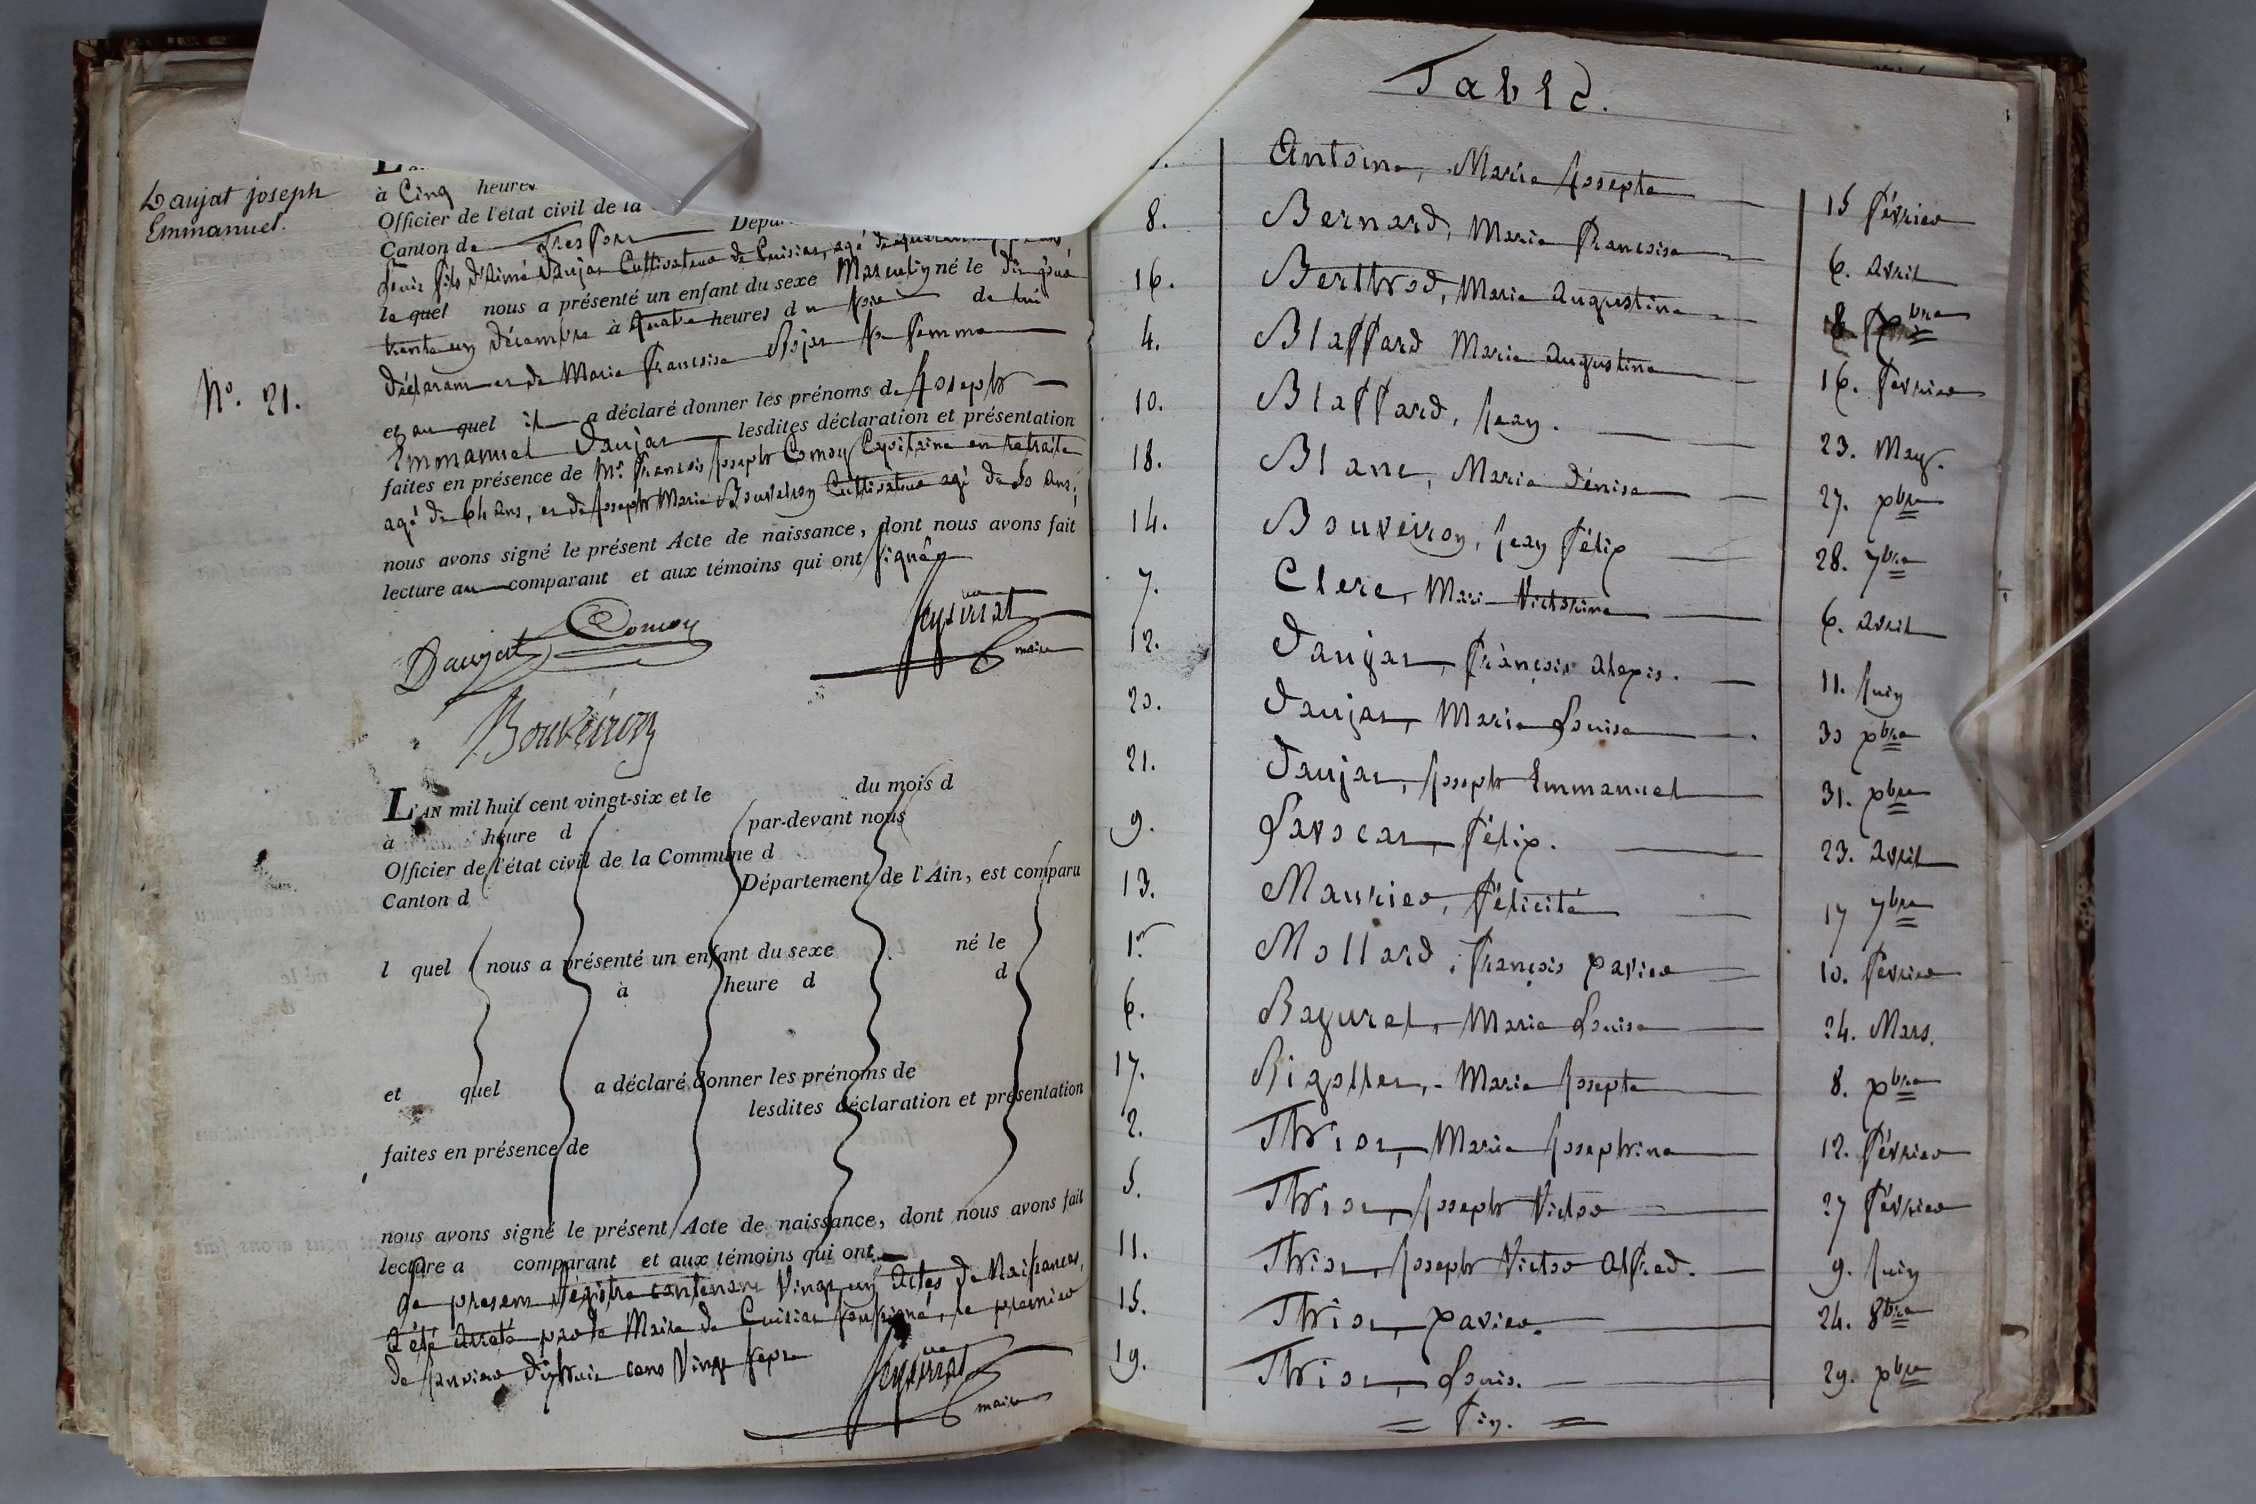 Daujat joseph
Emmanuel.
N°. 21.
à Cinq heures
Officier de l'état civil de la
Canton de Treffort Dépar
Louis fils d'Aimé Daujat Cultivateur de Cuisiat, agé de quarante
lequel nous a présenté un enfant du sexe Masculin né le dit jour
trente un décembre à Quatre heures du Soir de lui
déclarant et de Marie Françoise sa femme
et auquel il a déclaré donner les prénoms de Joseph
Emmanuel Daujat lesdites déclaration et présentation
faites en présence de Mr. François Joseph Comoy Capitaine en retraite
agé de 64 ans, et de Joseph Marie Bouveiron Cultivateur agé de 50 ans,
nous avons signé le présent Acte de naissance, dont nous avons fait
lecture au comparant et aux témoins qui ont signés
Daujat Comoy
maire
Bouveiron
L'AN mil huit cent vingt-six et le du mois d
à heure d par-devant nous
Officier de l'état civil de la Commune d
Canton d Département de l'Ain, est comparu
l quel nous a présenté un enfant du sexe né le
à heure d d
et quel a déclaré donner les prénoms de
lesdites déclaration et présentation
faites en présence de
nous avons signé le présent Acte de naissance, dont nous avons fait
lecture a comparant et aux témoins qui ont
Le present Régistre contenant Vingt un Actes de Naissances,
a été arreté par le Maire de Cuisiat soussigné, le premier
de Janvier dixhuit cent Vingt sept
maire
Table.
Antoine, Marie Josepte 15 février
8. Bernard, Marie francoise 6. avril
16. Berthod, Marie Augustine 8 xbre
4. Blaffard Marie Augustine 16. fevrier
10. Blaffard, Jean. 23. May.
18. Blanc, Marie Dénise 27. xbre
14. Bouveiron, Jean félix 28. 7bre
7. Clerc, Mari Victorine 6. avril
12. Daujat, françois alexis. 11. Juin
20. Daujat, Marie Louise 30 xbre
21. Daujat, Joseph Emmanuel 31. xbre
9. Lavocat, félix. 23. avril
13. Maurier, félicité 17 7bre
1er Mollard, françois xavier 10. février
6. Raguret, Marie Louise 24. Mars.
17. Rigollet, Marie Josepte 8. xbre
2. Thiot, Marie Josephine 12. février
5. Thiot, Joseph Victor 27 février
11. Thiot, Joseph Victor Alfred. 9. Juin
15. Thiot, xavier. 24. 8bre
19. Thiot, Louis. 29. xbre
= fin. =